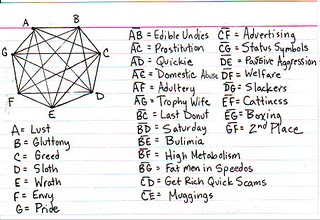 A
B
G
C
F
D
E
A = Lust
B = Gluttony
C = Greed
D = Sloth
E = Wrath
F = Envy
G = Pride
AB = Edible Undies
AC = Prostitution
AD = Quickie
AE = Domestic Abuse
AF = Adultery
AG = Trophy Wife
BC = Last Donut
BD = Saturday
BE = Bulimia
BF = High Metabolism
BG = Fat men in Speedos
CD = Get Rich Quick Scams
CE = Muggings
CF = Advertising
CG = Status Symbols
DE = Passive Aggression
DF = Welfare
DG = Slackers
EF = Cattiness
EG = Boxing
GF = 2nd Place